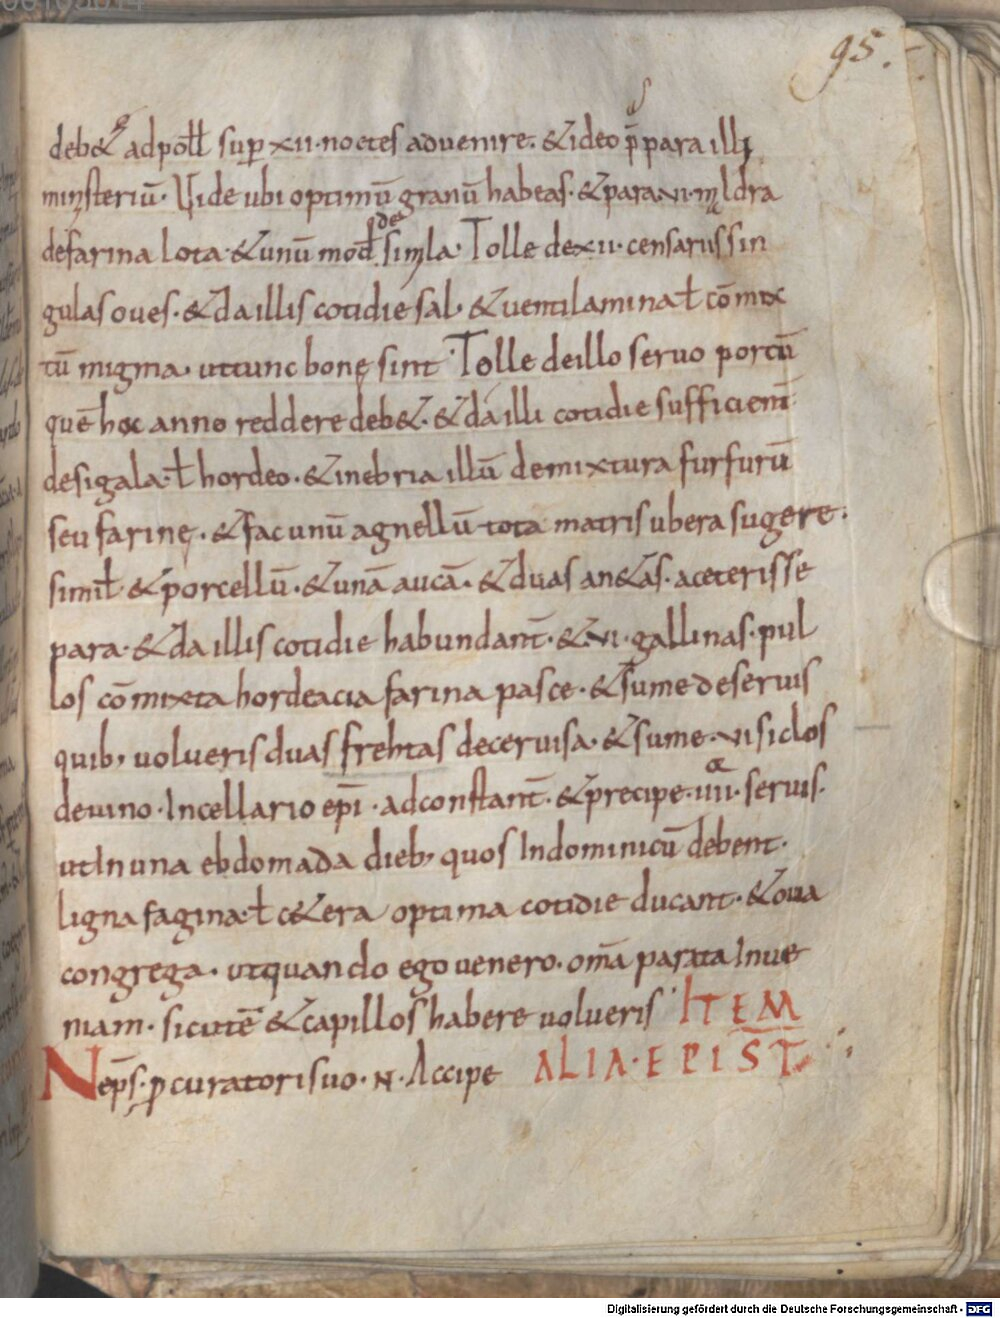 95.
deb& adpoł̄ł sup̄ xii·noctes aduenire. &ideo p̄para illi
minsteriū· Vide ubi optimū granū habeas· &para·vi·maldra
defarina lota·&unū mod̄·de simla· Tolle dexii·censariis sin
gulas oues·&da illis cotidie sal· &uentilamina ł cōmix
tū migma· uttunc bonę sint· Tolle deillo seruo porcū
quē hoc anno reddere deb&·&da illi cotidie sufficient̄
desigala·ł hordeo·&inebria illū demixtura furfurū
seu farinę·&fac unū agnellū tota matris ubera sugere·
simił &porcellū·&unā aucā·&duas an&as·aceteris se
para·&da illis cotidie habundant̄·&vi·gallinas·pul
los cōmixta hordeacia farina pasce·&sume deseruis
quib; uolueris duas frehtas deceruisa·&sume·vi siclos
deuino·Incellario ep̄i·adconstant̄·&precipe·iiii·seruis·
utIn una ebdomada dieb; quos Indominicū debent·
ligna fagina·ł c&era optima cotidie ducant·&oua
congrega·utquando ego uenero·om̄a parata Inue
niam·sicutē &capillos habere uolueris· ITEM
Nep̄s·p̄curatori suo·N·Accipe ALIA·EPIST̄·
Digitalisierung gefördert durch die Deutsche Forschungsgemeinschaft · DFG